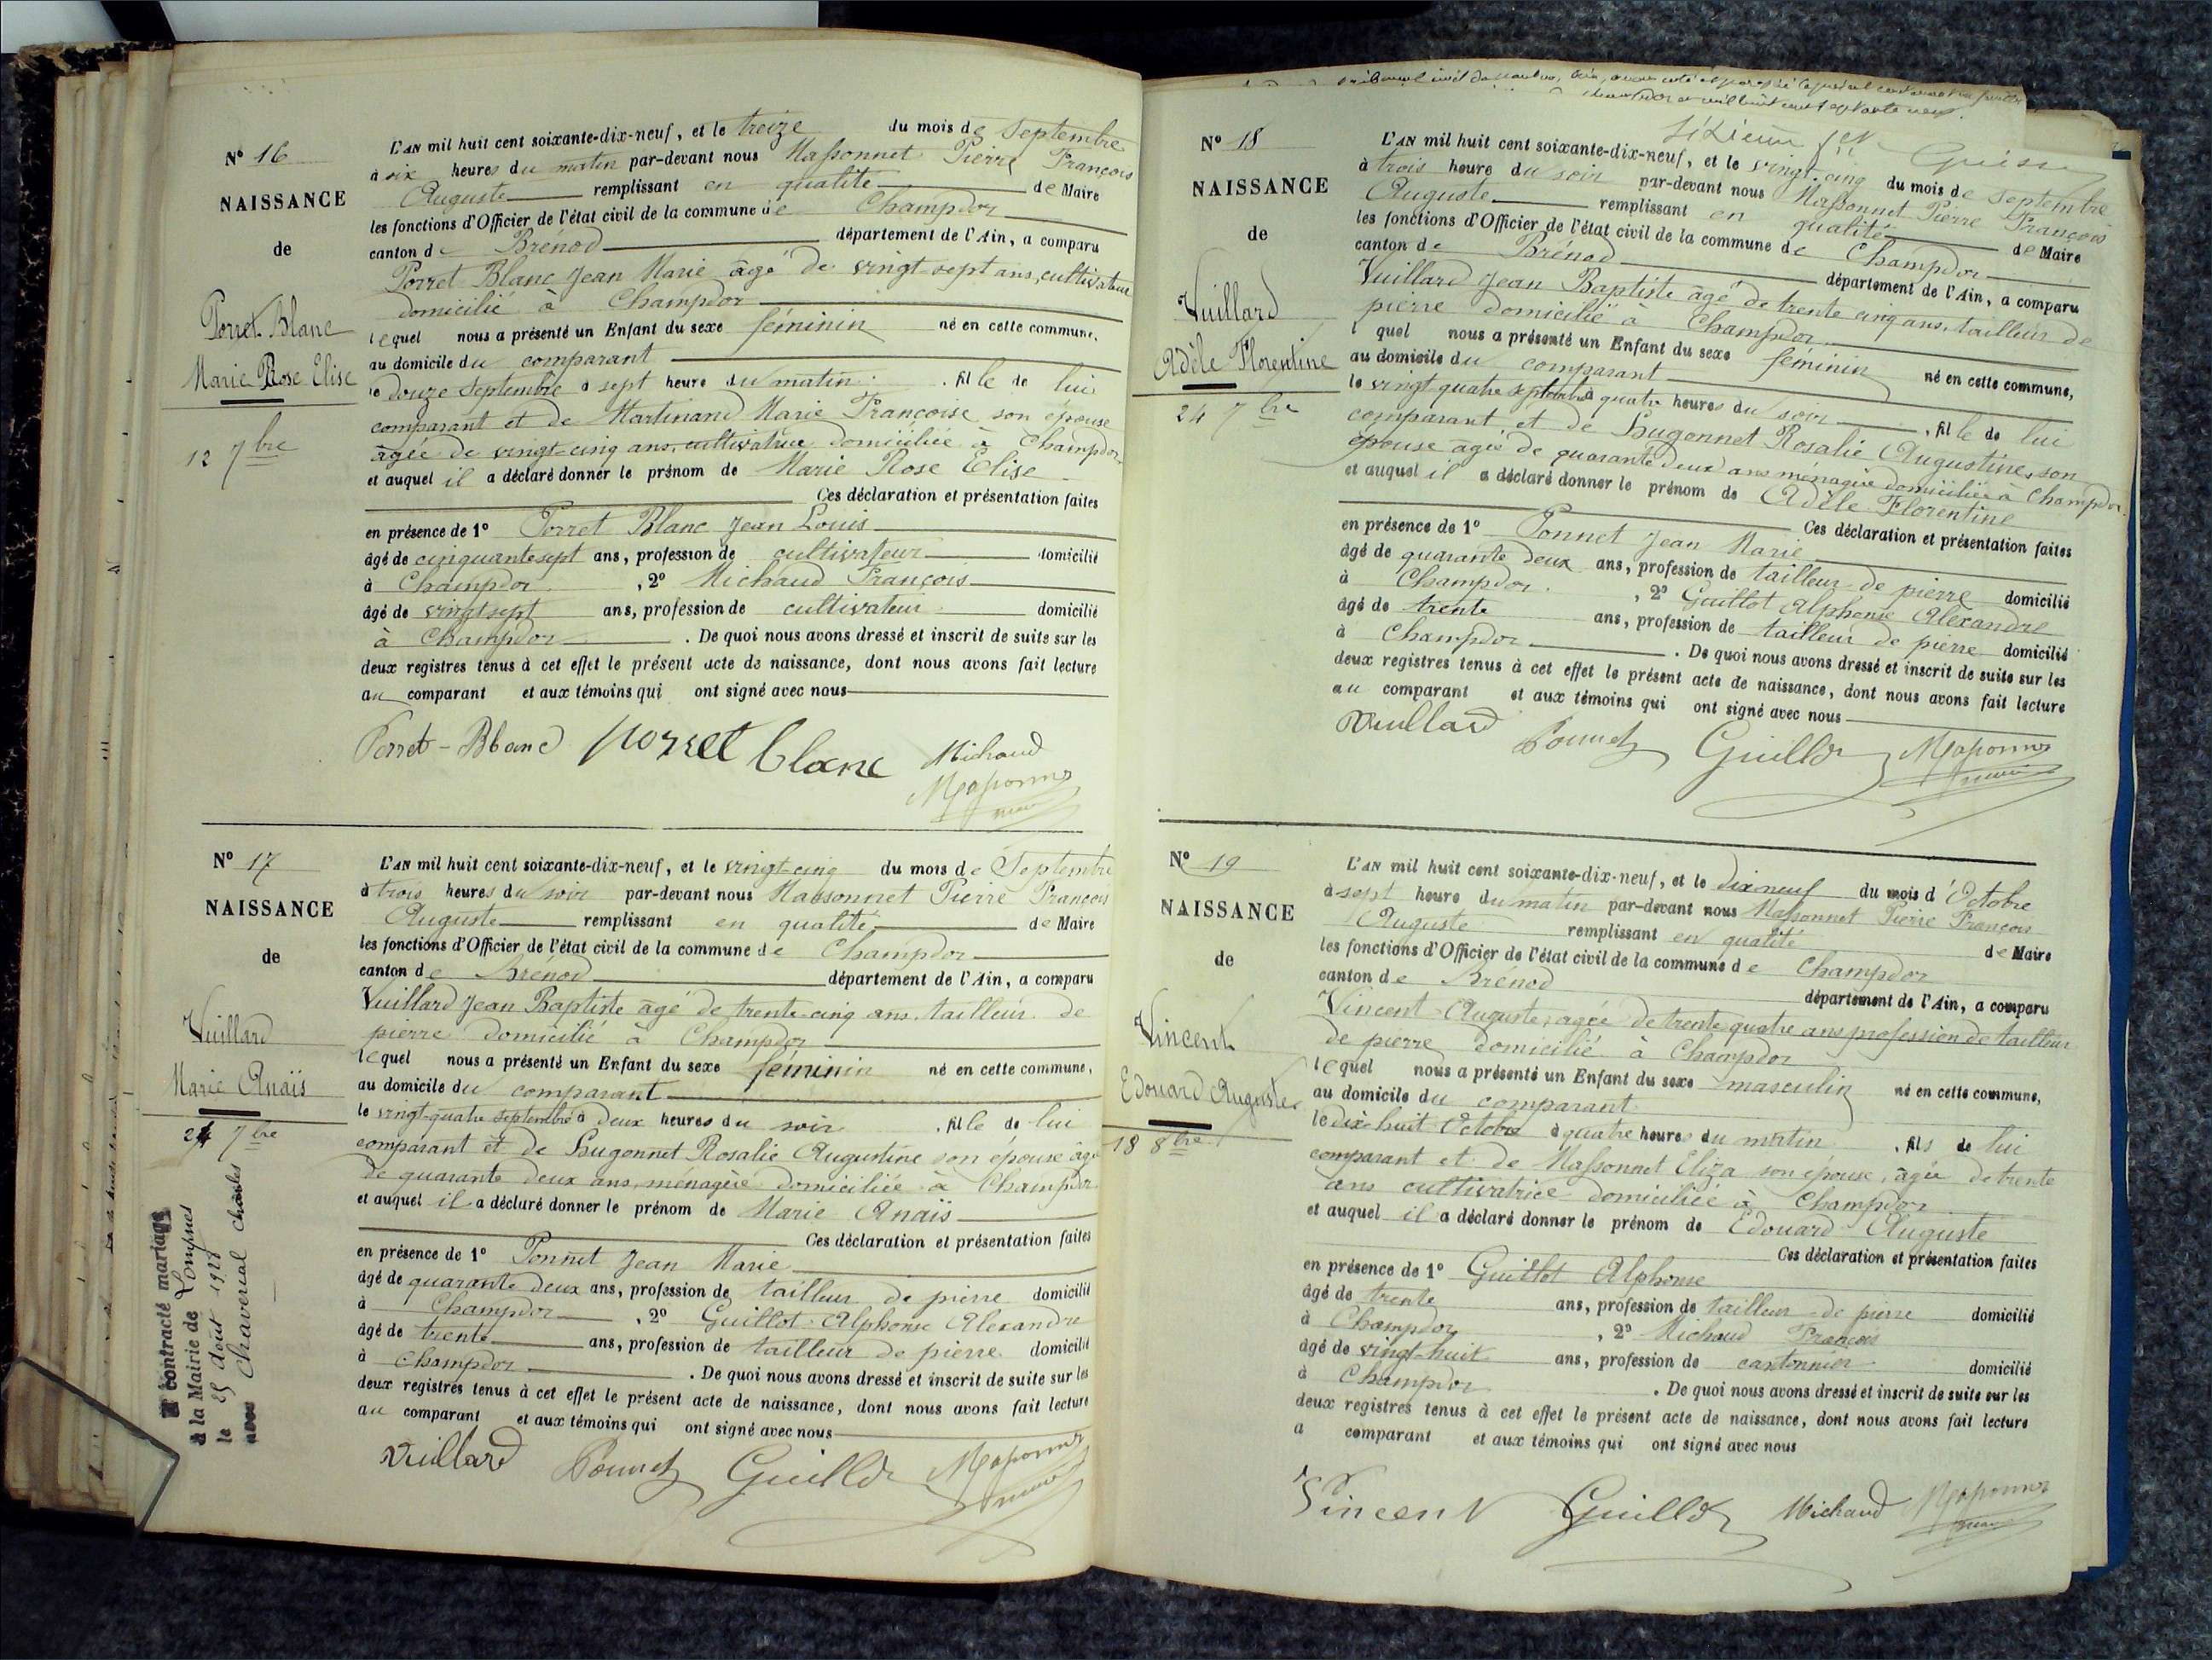 N° 16
NAISSANCE
de
Porret-Blanc
Marie Rose Elise
12 7bre
L'AN mil huit cent soixante-dix-neuf, et le treize du mois de Septembre
à six heures du matin par-devant nous Massonnet Pierre François
Auguste remplissant en qualité de Maire
les fonctions d'Officier de l'état civil de la commune de Champdor
canton de Brénod département de l'Ain, a comparu
Porret Blanc Jean Marie âgé de vingt sept ans, cultivateur
domicilié à Champdor
lequel nous a présenté un Enfant du sexe féminin né en cette commune,
au domicile du comparant
le douze Septembre à sept heure du matin , fille de lui
comparant et de Martinand Marie Françoise son épouse
âgée de vingt-cinq ans, cultivatrice domiciliée à Champdor
et auquel il a déclaré donner le prénom de Marie Rose Elise
Ces déclaration et présentation faites
en présence de 1° Porret Blanc Jean Louis
âgé de cinquante sept ans, profession de cultivateur domicilié
à Champdor , 2° Michaud François
âgé de vingt sept ans, profession de cultivateur domicilié
à Champdor . De quoi nous avons dressé et inscrit de suite sur les
deux registres tenus à cet effet le présent acte de naissance, dont nous avons fait lecture
au comparant et aux témoins qui ont signé avec nous
Porret-Blanc porret blanc Michaud
Massonnet
maire
N° 17
NAISSANCE
de
Vuillard
Marie Anaïs
24 7bre
A contracté mariage
à la Mairie de Lompnes
le 25 août 1928
avec Chavérial Charles
L'AN mil huit cent soixante-dix-neuf, et le vingt-cinq du mois de Septembre
à trois heures du soir par-devant nous Massonnet Pierre François
Auguste remplissant en qualité de Maire
les fonctions d'Officier de l'état civil de la commune de Champdor
canton de Brénod département de l'Ain, a comparu
Vuillard Jean Baptiste âgé de trente-cinq ans, tailleur de
pierre domicilié à Champdor
lequel nous a présenté un Enfant du sexe féminin né en cette commune,
au domicile du comparant
le vingt-quatre septembre à deux heures du soir , fille de lui
comparant et de Hugonnet Rosalie Augustine son épouse âgée
de quarante deux ans, ménagère domiciliée à Champdor
et auquel il a déclaré donner le prénom de Marie Anaïs
Ces déclaration et présentation faites
en présence de 1° Ponnet Jean Marie
âgé de quarante deux ans, profession de tailleur de pierre domicilié
à Champdor , 2° Guillot Alphonse Alexandre
âgé de trente ans, profession de tailleur de pierre domicilié
à Champdor . De quoi nous avons dressé et inscrit de suite sur les
deux registres tenus à cet effet le présent acte de naissance, dont nous avons fait lecture
au comparant et aux témoins qui ont signé avec nous
Vuillard Ponnet Guillot Massonnet
maire
N° 18
NAISSANCE
de
Vuillard
Adèle Florentine
24 7bre
L'AN mil huit cent soixante-dix-neuf, et le vingt-cinq du mois de Septembre
à trois heure du soir par-devant nous Massonnet Pierre François
Auguste remplissant en qualité de Maire
les fonctions d'Officier de l'état civil de la commune de Champdor
canton de Brénod département de l'Ain, a comparu
Vuillard Jean Baptiste âgé de trente cinq ans, tailleur de
pierre domicilié à Champdor
lequel nous a présenté un Enfant du sexe féminin né en cette commune,
au domicile du comparant
le vingt-quatre septembre à quatre heures du soir , fille de lui
comparant et de Hugonnet Rosalie Augustine, son
épouse âgée de quarante deux ans ménagère domiciliée à Champdor
et auquel il a déclaré donner le prénom de Adèle Florentine
Ces déclaration et présentation faites
en présence de 1° Ponnet Jean Marie
âgé de quarante deux ans, profession de tailleur de pierre domicilié
à Champdor , 2° Guillot Alphonse Alexandre
âgé de trente ans, profession de tailleur de pierre domicilié
à Champdor . De quoi nous avons dressé et inscrit de suite sur les
deux registres tenus à cet effet le présent acte de naissance, dont nous avons fait lecture
au comparant et aux témoins qui ont signé avec nous
Vuillard Ponnet Guillot Massonnet
maire
N° 19
NAISSANCE
de
Vincent
Edouard Auguste
18 8bre
L'AN mil huit cent soixante-dix-neuf, et le dix neuf du mois d'Octobre
à sept heure du matin par-devant nous Massonnet Pierre François
Auguste remplissant en qualité de Maire
les fonctions d'Officier de l'état civil de la commune de Champdor
canton de Brénod département de l'Ain, a comparu
Vincent Auguste, agée de trente quatre ans profession de tailleur
de pierre domicilié à Champdor
lequel nous a présenté un Enfant du sexe masculin né en cette commune,
au domicile du comparant
le dix-huit Octobre à quatre heures du matin , fils de lui
comparant et de Massonnet Eliza son épouse, agée de trente
ans cultivatrice domiciliée à Champdor
et auquel il a déclaré donner le prénom de Edouard Auguste
Ces déclaration et présentation faites
en présence de 1° Guillot Alphonse
âgé de trente ans, profession de tailleur de pierre domicilié
à Champdor , 2° Michaud François
âgé de vingt-huit ans, profession de cantonnier domicilié
à Champdor . De quoi nous avons dressé et inscrit de suite sur les
deux registres tenus à cet effet le présent acte de naissance, dont nous avons fait lecture
a comparant et aux témoins qui ont signé avec nous
Vincent Guillot Michaud Massonnet
maire